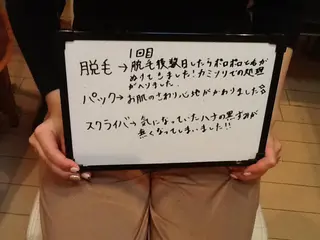 1回目
脱毛→脱毛後数日したらポロポロと毛が
ぬけてきました!カミソリでの処理
がへりました。
パック→お肌のさわり心地がかわりました
スクライバ→気になっていたハナの黒ずみが
無くなってしまいました!!